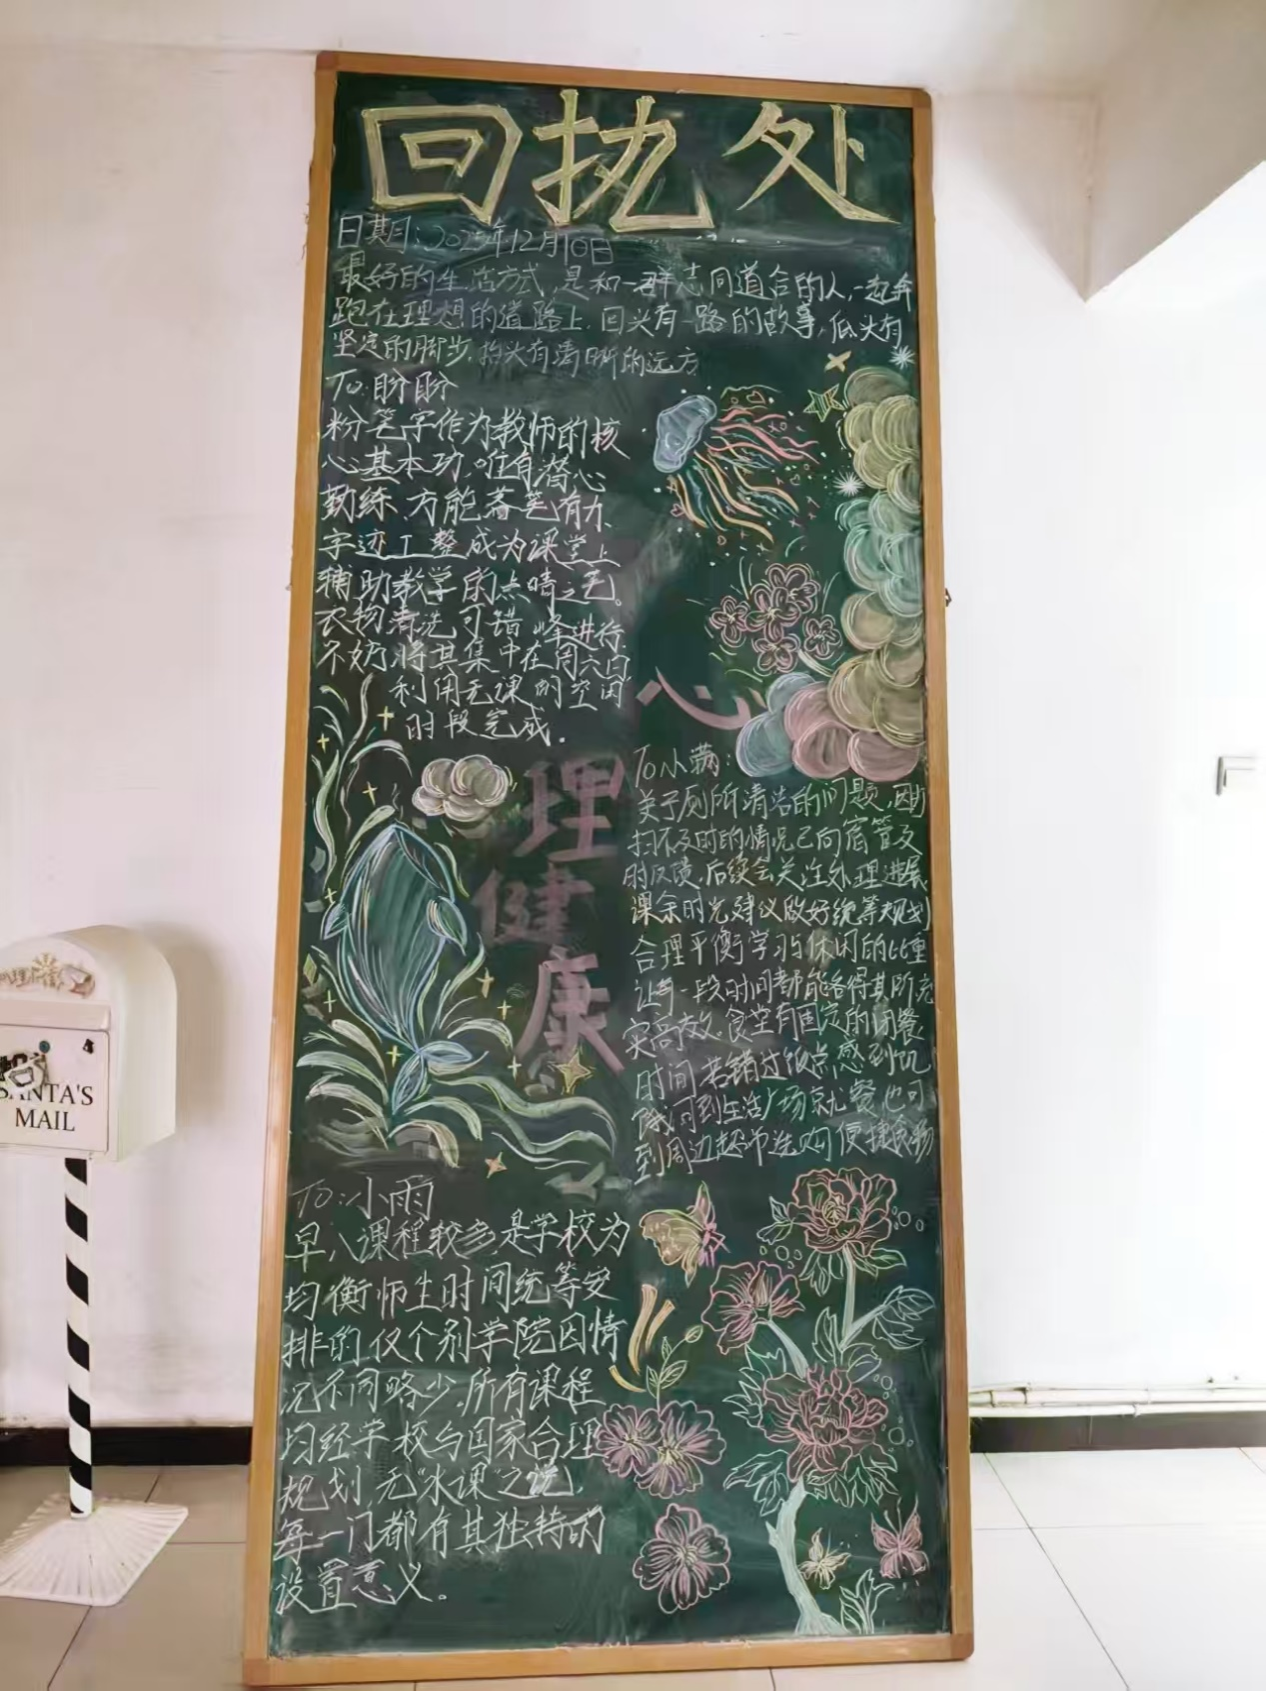 回执处
日期:2025年12月10日
最好的生活方式,是和一群志同道合的人,一起奔
跑在理想的道路上,回头有一路的故事,低头有
坚定的脚步,抬头有清晰的远方
To:盼盼
粉笔字作为教师的核
心基本功,唯有潜心
勤练,方能落笔有力、
字迹工整成为课堂上
辅助教学的点睛之笔。
衣物清洗可错峰进行,
不妨将其集中在周六日
利用无课的空闲
时段完成.
心
理
健
康
To小满:
关于厕所清洁的问题,因打
扫不及时的情况已向宿管及
时反馈,后续会关注处理进展
课余时光建议做好统筹规划
合理平衡学习与休闲的比重
让每一段时间都能各得其所充
实高效.食堂有固定的闭餐
时间,若错过饭点感到饥
饿可到生活广场就餐也可
到周边超市选购便捷食物
To:小雨
早八课程较多,是学校为
均衡师生时间统筹安
排的,仅个别学院因情
况不同略少,所有课程
均经学校与国家合理
规划,无“水课”之说,
每一门都有其独特的
设置意义.
SANTA'S
MAIL